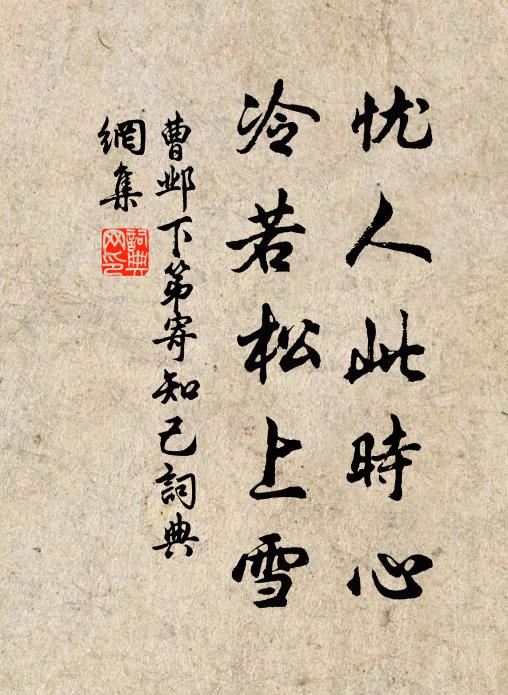 忧人此時心
冷若松上雪
曹邺下第寄知己詞典
網集
詞典
网印